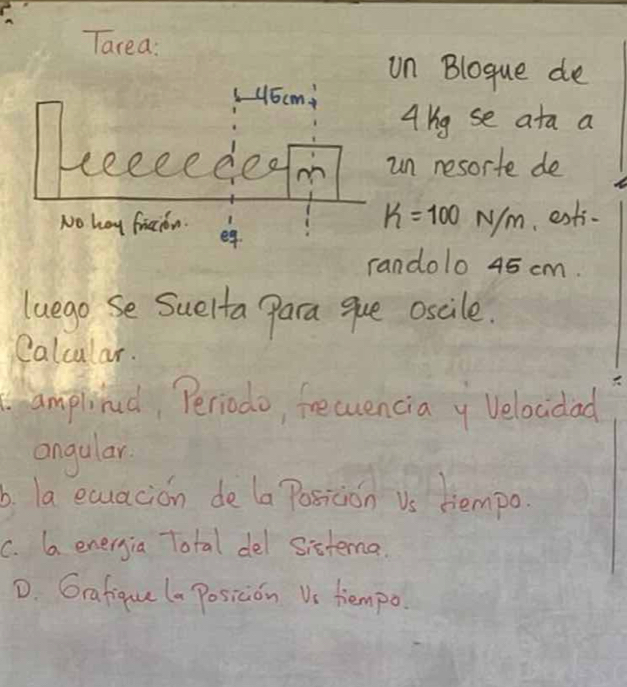 Tarea:
45cm
m
No hay fricción.
eq.
Un Bloque de
4 Kg se ata a
un resorte de
K = 100 N/m, esti-
randolo 45 cm.
luego se suelta para que oscile.
Calcular.
amplitud, Periodo, frecuencia y Velocidad
angular.
b. la ecuación de la Posición Vs tiempo.
C. la energía Total del Sistema.
D. Grafique la Posición Vs tiempo.